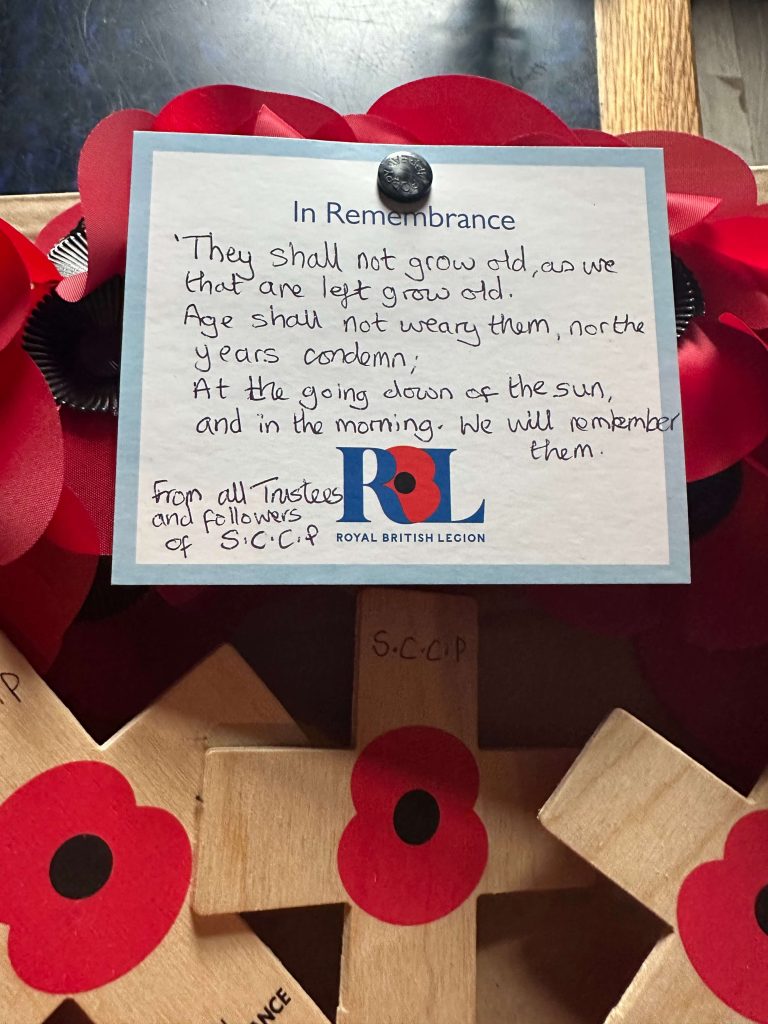 In Remembrance
'They shall not grow old, as we
that are left grow old.
Age shall not weary them, nor the
years condemn;
At the going down of the sun,
and in the morning. We will remember
them.
From all Trustees
and followers
of S.C.C.P
RBL
ROYAL BRITISH LEGION
S.C.C.P
iP
ANCE